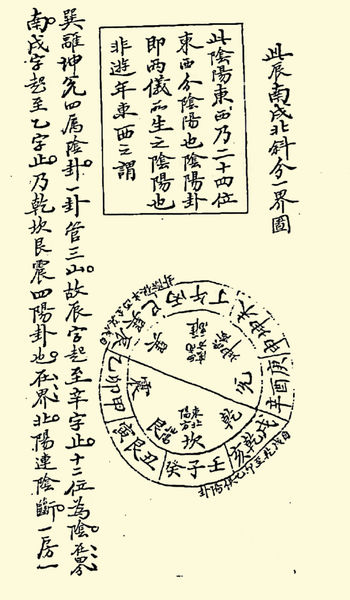 此辰南戌北斜分一界圖
此陰陽東西乃二十四位
東西分陰陽也陰陽卦
即兩儀所生之陰陽也
非遊年東西三謂
丁午丙巳巽辰乙卯甲寅艮丑癸子壬亥乾戌辛酉庚申坤未
巽
離
坤
兌
乾
坎
艮
震
巽離坤兌四屬陰卦一卦管三山故辰字起至辛字止十二位為陰在界
南戌字起至乙字止乃乾坎艮震四陽卦也在界北陽連陰斷一房一